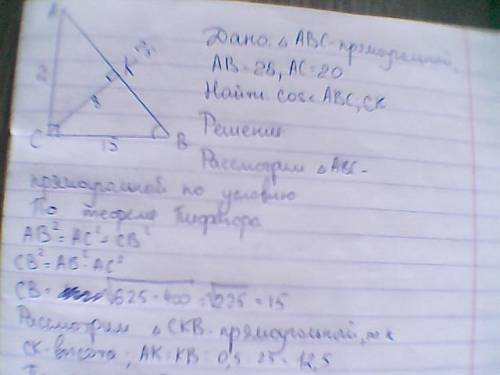 A
Дано: △ABC-прямоугольный,
AB=25, AC=20
Найти: cos<ABC, CK
Решение
Рассмотрим △ABC-
прямоугольный по условию
По теореме Пифагора
AB²=AC²+CB²
CB²=AB²-AC²
CB= √625-400=√225=15
Рассмотрим △CKB-прямоугольный, т.к
CK-высота; AK=KB=0,5·25=12,5
K
2
C
15
B